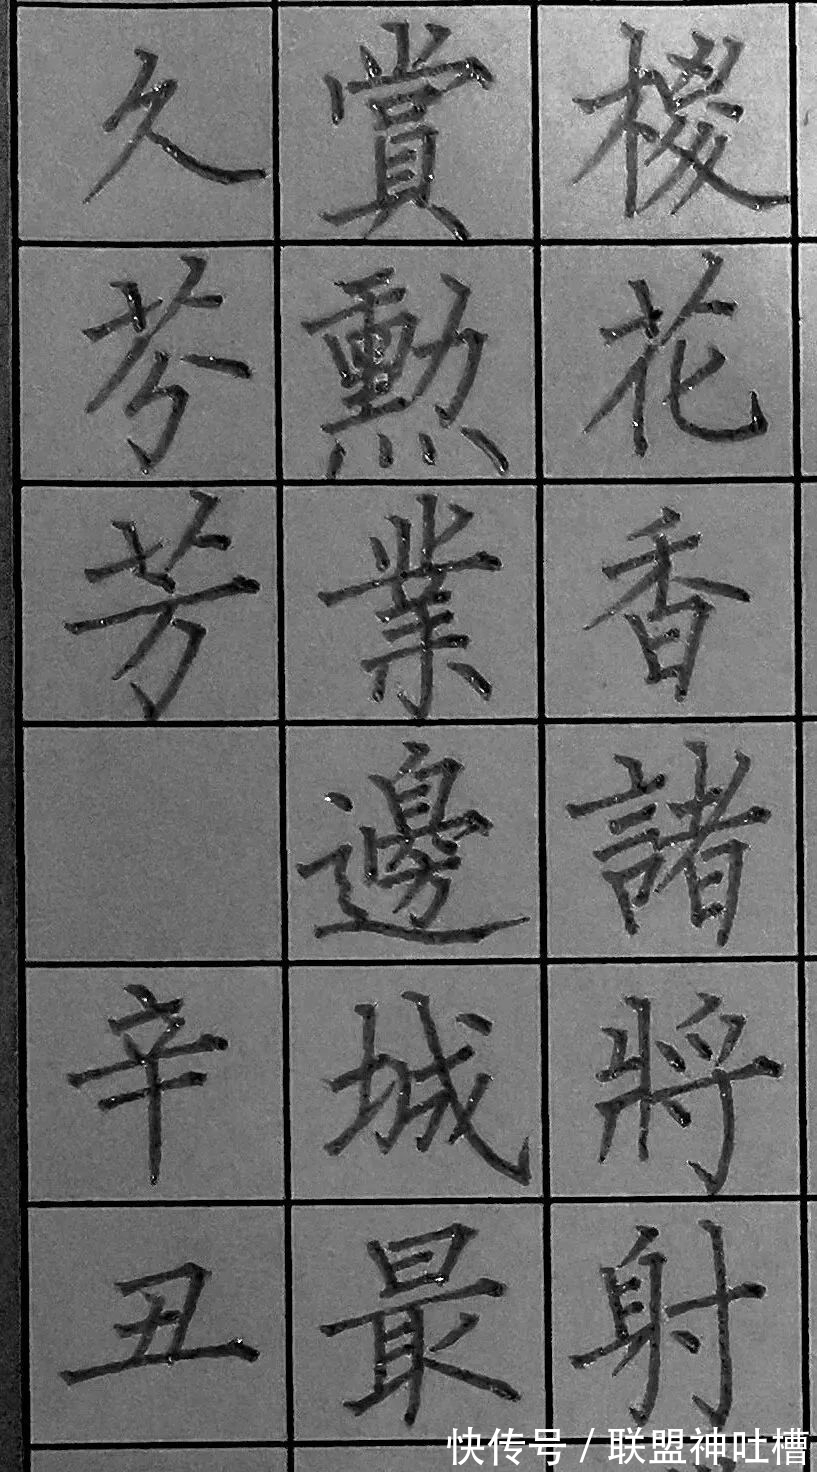 花香諸將射
賞勳業邊城最
久芬芳 辛丑
快传号 / 联盟神吐槽